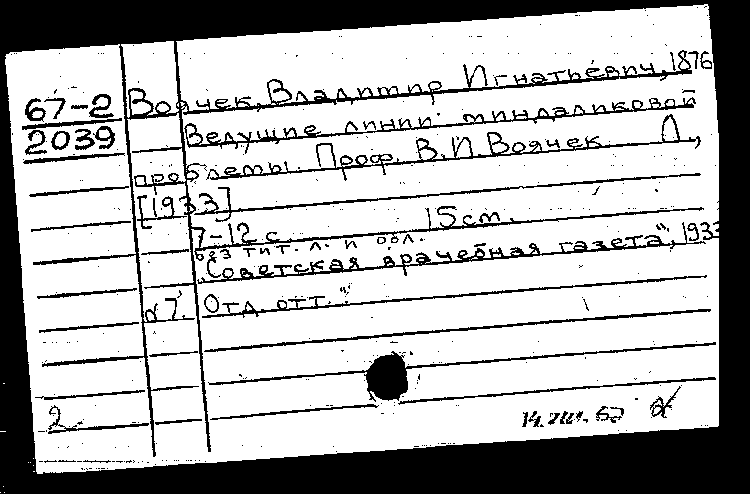 67-2 Воячек, Владимир Игнатьевич, 1876
2039 Ведущие линии миндаликовой
проблемы. Проф. В.И. Воячек. Л.,
[1933].
7-12 с. 15 см.
Без тит. л. и обл.
"Советская врачебная газета", 1933
7. Отд. отт."
2 14.VIII.67